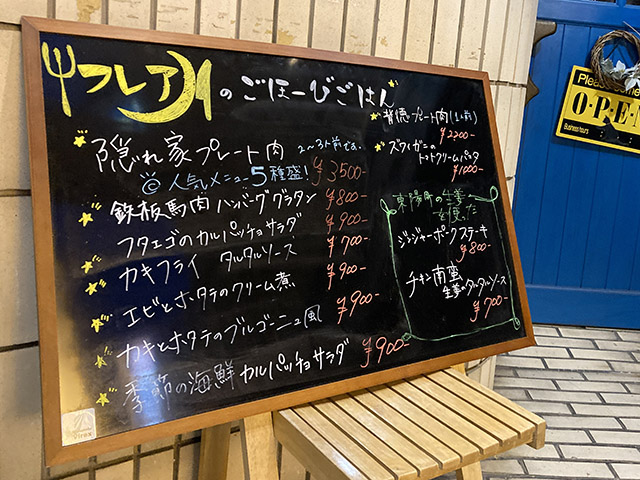 フレアのごほーびごはん
隠れ家プレート肉 2〜3人前です。 ¥3500-
人気メニュー5種盛!
鉄板馬肉ハンバーググラタン ¥800-
フタエゴのカルパッチョサラダ ¥900-
カキフライ タルタルソース ¥700-
エビとホタテのクリーム煮 ¥900-
カキとホタテのブルゴーニュ風 ¥900-
季節の海鮮カルパッチョサラダ ¥900-
背徳プレート肉(1人前)
¥2200-
ズワイガニの
トマトクリームパスタ
¥1000-
東陽町の生姜
を使った
ジンジャーポークステーキ
¥800-
チキン南蛮
生姜のタルタルソース
¥700-
Please Come
OPEN
Business hours
Virex